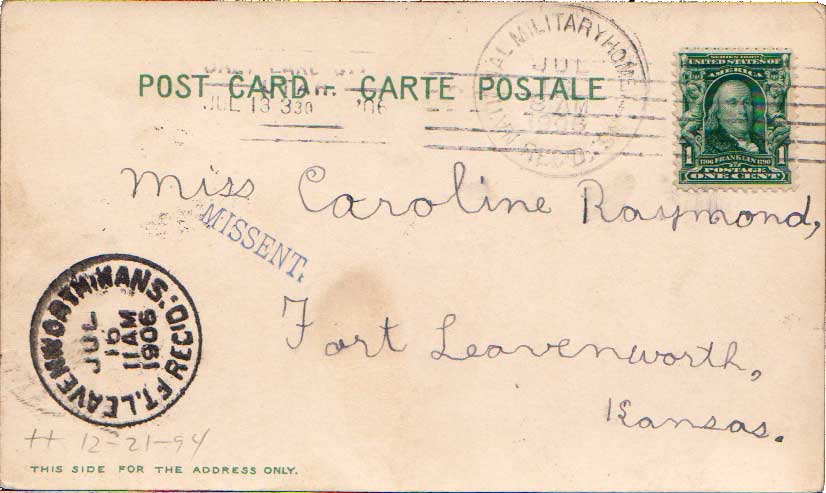 NATIONAL MILITARY HOME, KANSAS
JUL
AM
REC'D.
SALT LAKE CITY
JUL 13 330 '06
POST CARD - CARTE POSTALE
SERIES 1902
UNITED STATES OF
AMERICA
1 1706 FRANKLIN 1790 1
POSTAGE
ONE CENT
Miss Caroline Raymond,
MISSENT.
Fort Leavenworth,
Kansas.
FT. LEAVENWORTH, KANS. REC'D.
JUL
16
11 AM
1906
H 12-21-94
THIS SIDE FOR THE ADDRESS ONLY.